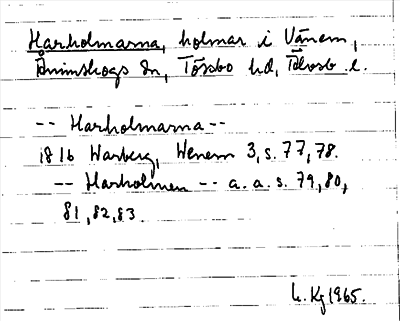 Harholmarna, holmar i Vänern,
Ånimskogs sn, Tössbo hd, Älvsb. l.
-- Harholmarna --
1816 Warberg, Wenern 3, s. 77, 78.
-- Harholmen -- a. a. s. 79, 80,
81, 82, 83.
Kg 1965.